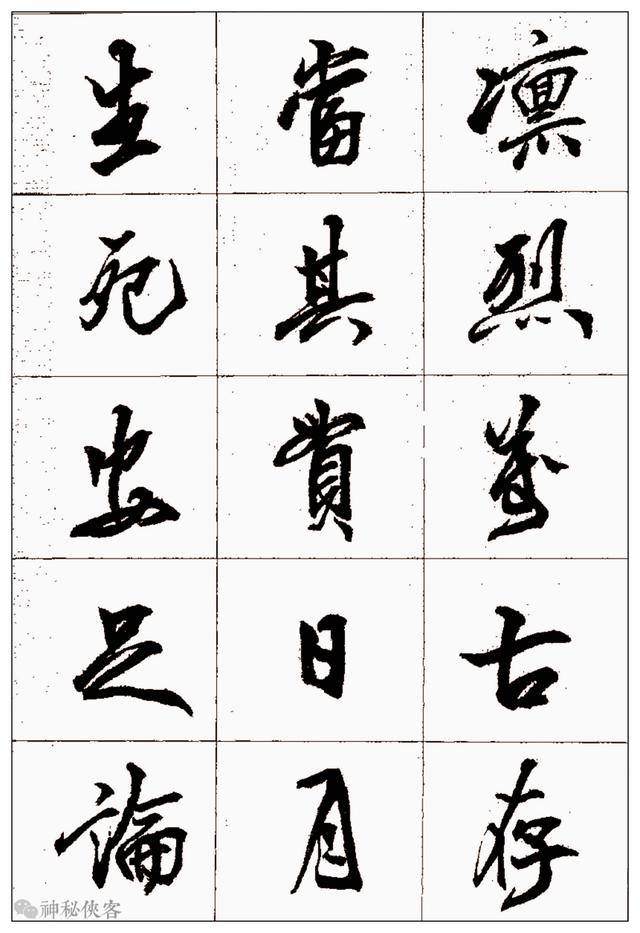 凛烈萬古存
當其貫日月
生死安足論
神秘俠客